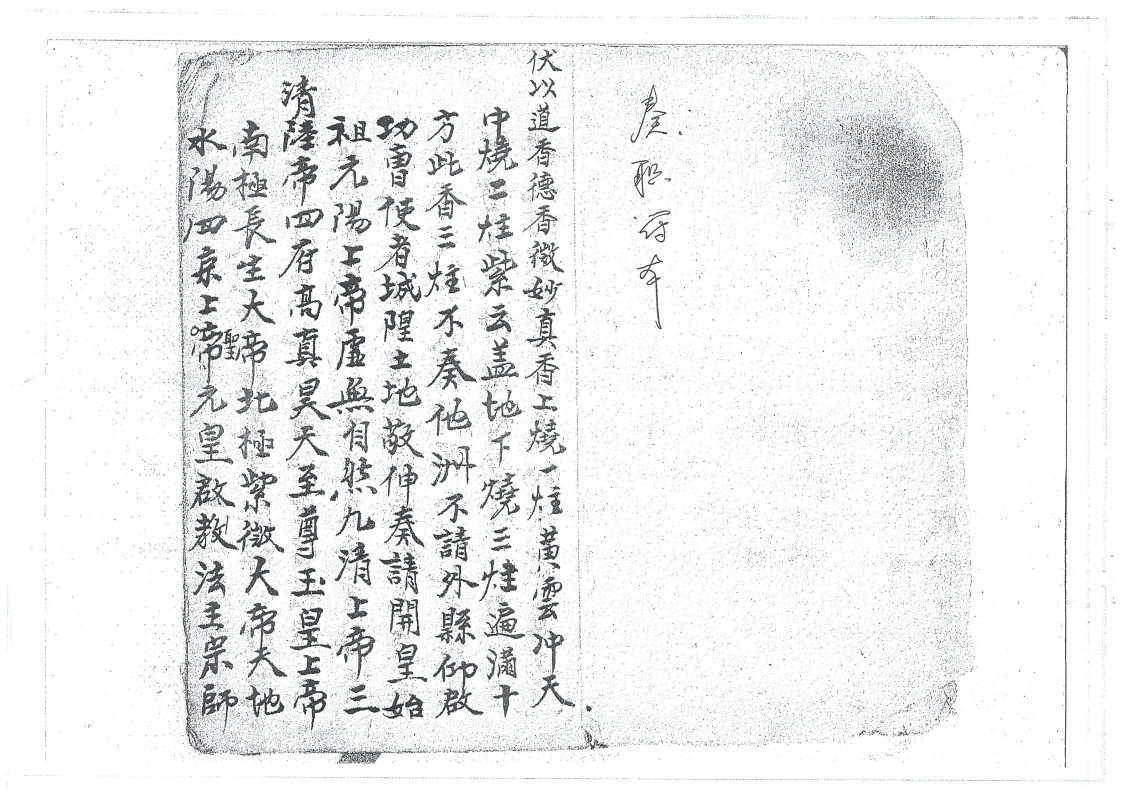 奏职符本
伏以道香德香微妙真香上燒一炷黄雲冲天
中燒二炷紫云盖地下燒三炷遍滿十
方此香三炷不奏他洲不請外縣仰啟
功曹使者城隍土地敬伸奏請開皇始
祖元陽上帝虛無自然九清上帝三
清陸帝四府高真昊天至尊玉皇上帝
南極長生大帝北極紫微大帝天地
水陽四京上帝聖元皇啟教法王宗師